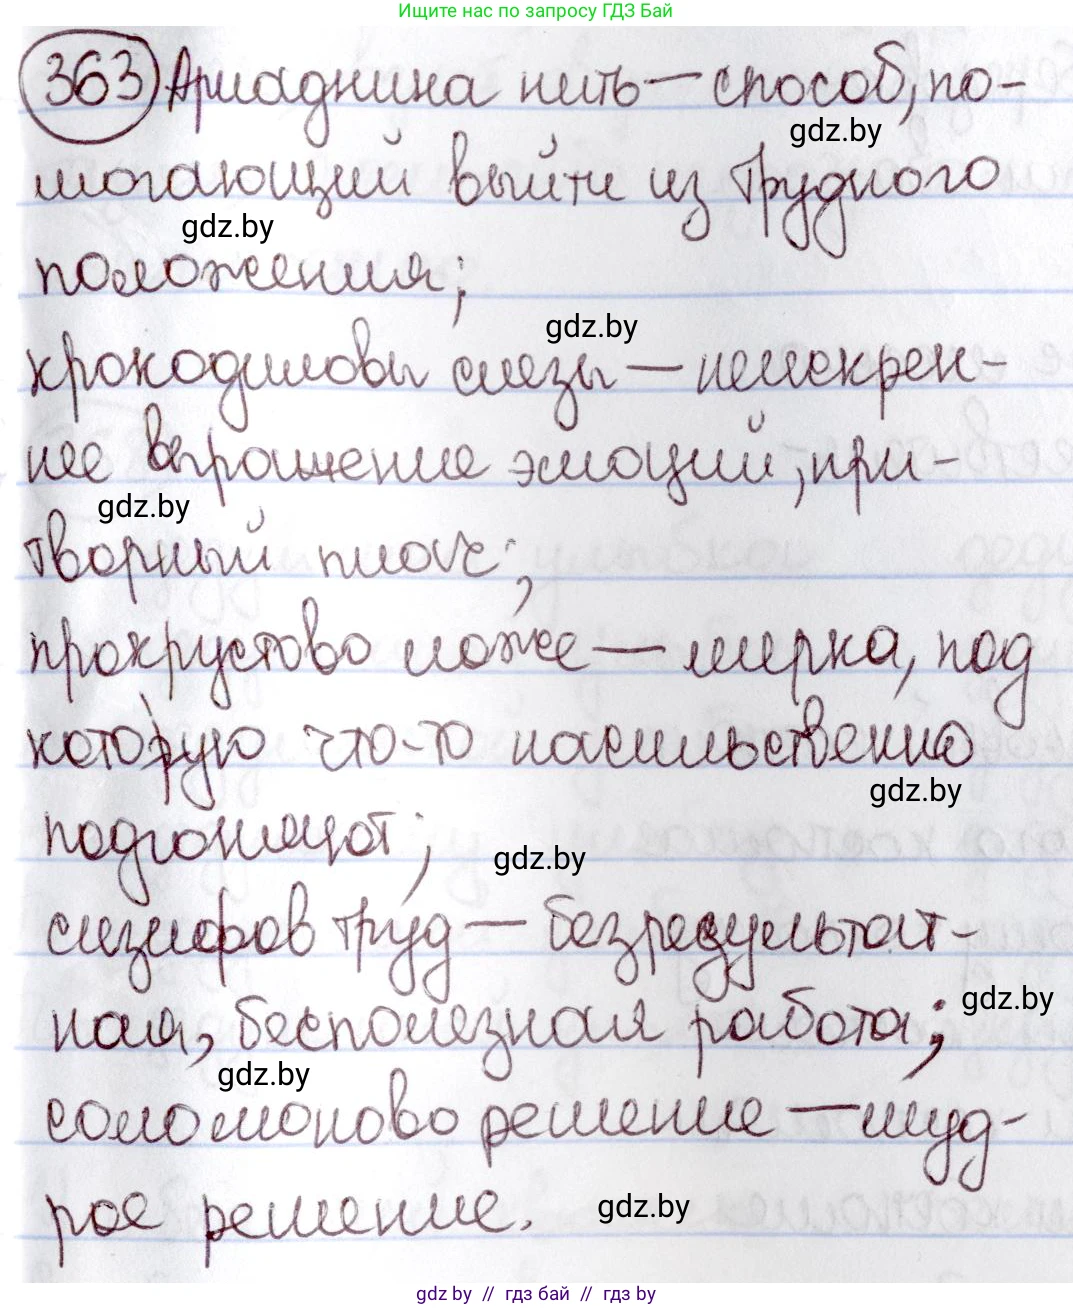 Ищите нас по запросу ГДЗ Бай
363 Ариаднина нить — способ, по-
gdz.by
могающий выйти из трудного
gdz.by
положения;
gdz.by
крокодиловы слезы — неискрен-
нее выражение эмоций, при-
gdz.by
творный плач;
прокрустово ложе — мерка, под
которую что-то насильственно
gdz.by
подгоняют;
gdz.by
сизифов труд — безрезультат-
gdz.by
ная, бесполезная работа;
gdz.by
соломоново решение — муд-
рое решение.
gdz.by
gdz by // гдз бай // гдз by